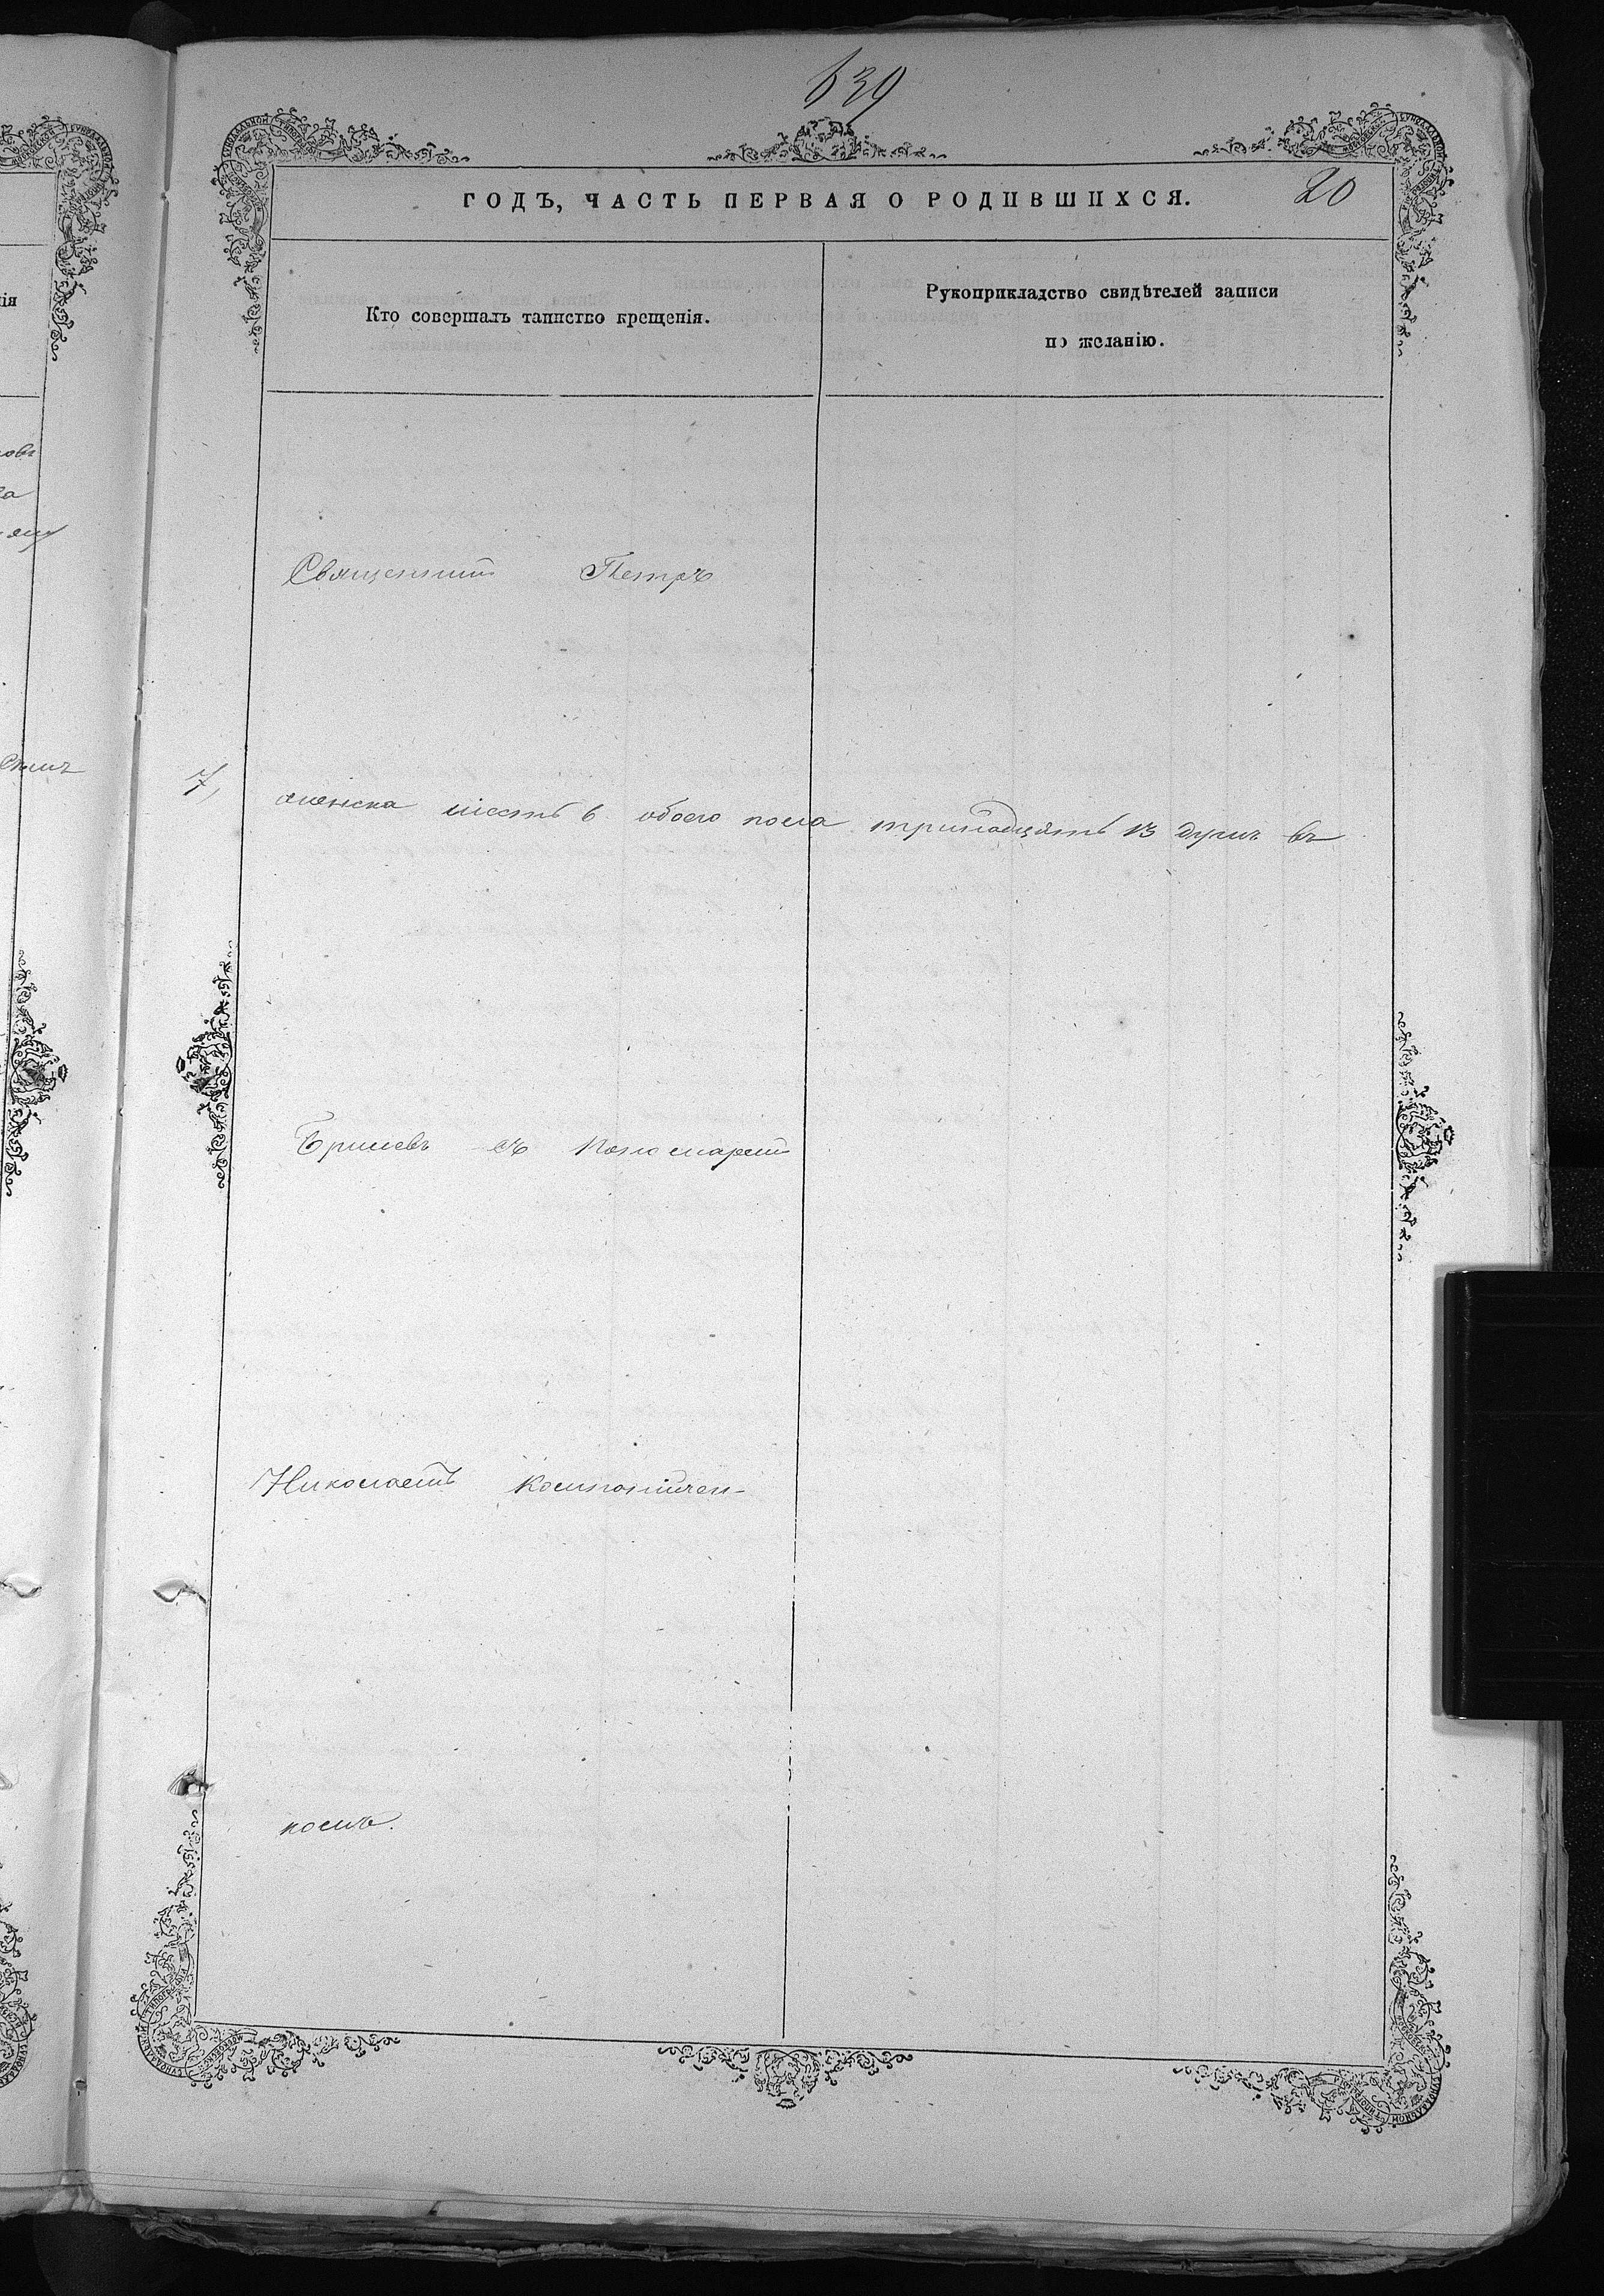 639
ГОДЪ, ЧАСТЬ ПЕРВАЯ О РОДИВШИХСЯ. 20
Кто совершалъ таинство крещенія.
Рукоприкладство свидѣтелей записи
по желанію.
Священник Петръ
7, женска шесть 6 обоего пола тринадцать 13 душъ въ
съ пономарем
Николаемъ
номъ.